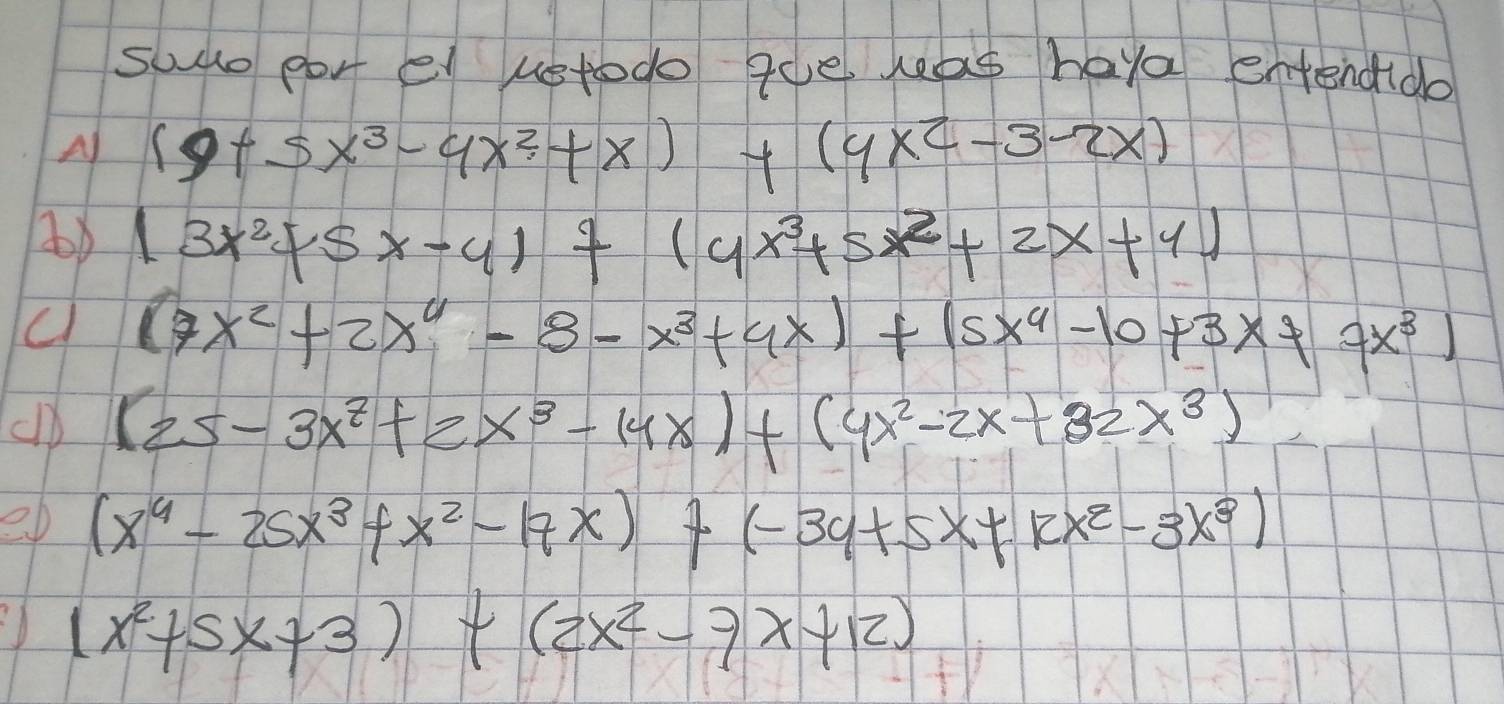 Sumo por el metodo que mas haya entendido
A) (9+5x³-4x²+x) + (4x²-3-2x)
b) (3x²+5x-4) + (4x³+5x²+2x+4)
c) (7x²+2x⁴-8-x³+4x) + (5x⁴-10+3x+7x³)
d) (25-3x²+2x³-14x)+(4x²-2x+32x³)
e) (x⁴-25x³+x²-17x) + (-34+5x+12x²-3x³)
(x²+5x+3) + (2x²-7x+12)